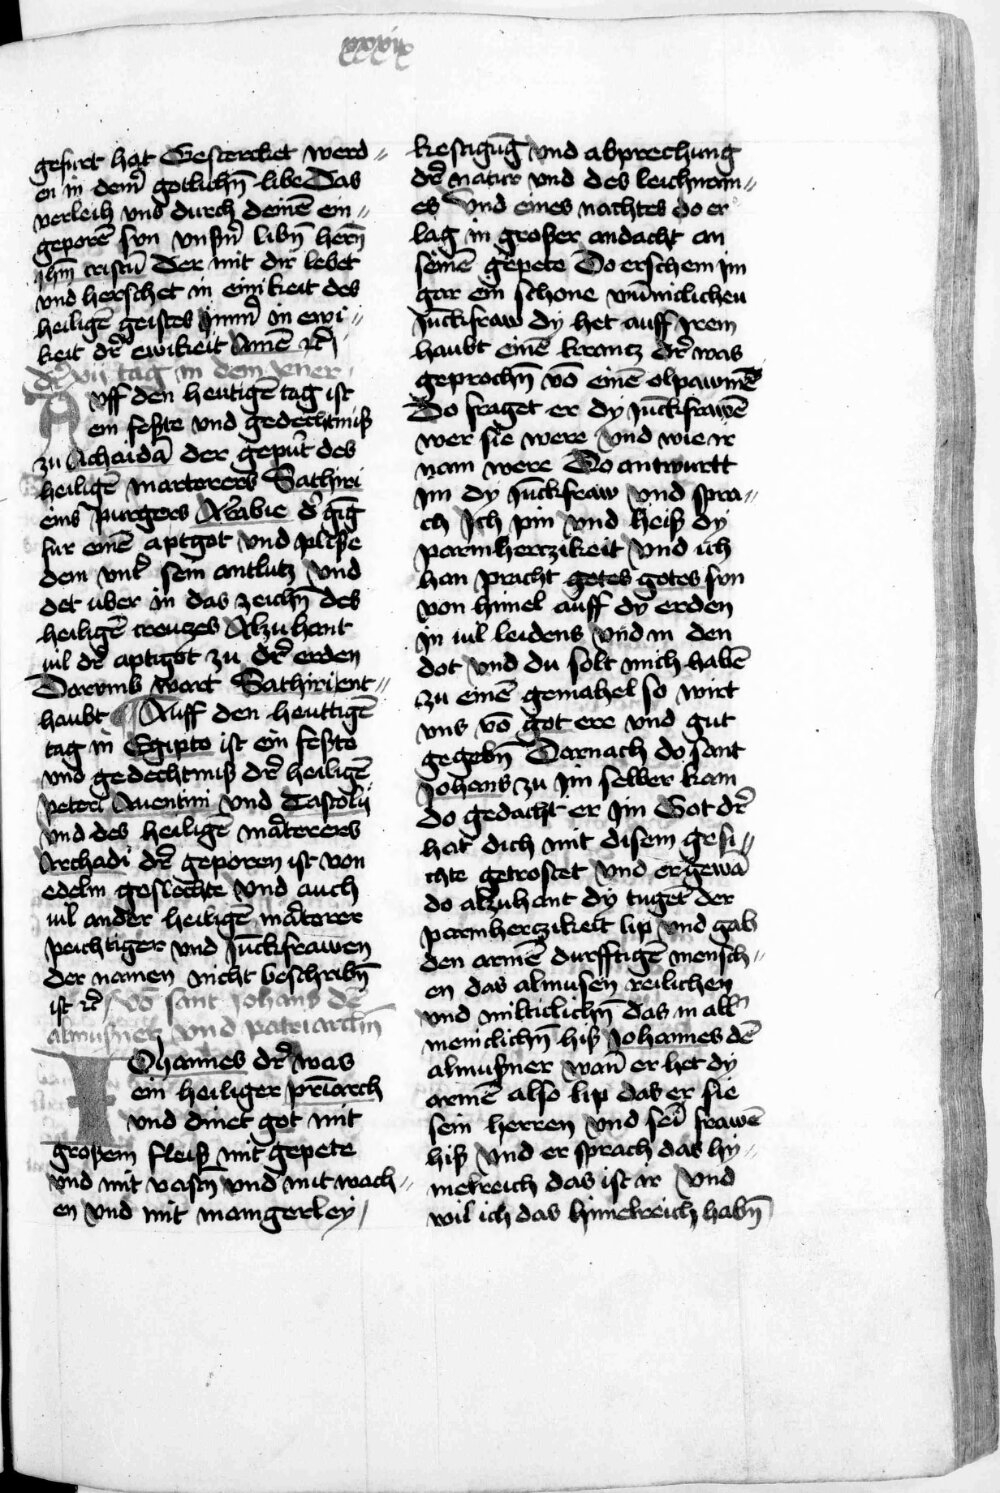 xxxvii
gefurt hat Gesterrcket werd〃
en in dem̄ gotlichn̄ libe Das
verleih vns durch deinē ein〃
geporē sun vnsn̄ libn̄ hern̄
ihm̄ cristū Der mit dir lebet
vnd herschet in einikeit des
heiligē geistes ym̄ in ewi〃
keit dr̄ ewikeit Amē ⁊c̄
dr̄ xij tag in dem Jener
Aff den heutigē tag ist
ein feste vnd gedechtmiß
zu Achaidā der gepūt des
heiligē martterers Sathiri
eins purgers Arabie dr̄ gīg
fur einē aptgot vnd pliße
dem vntr̄ sein antlutz vnd
det uber in das zeichn̄ des
heiligē creuczes Alzu hant
vil dr̄ aptigot zu dr̄ erden
Darvmb wart Sathiri ent〃
haubt Auff den heuttigē
tag in Egipto ist ein feste
vnd gedechtmiß dr̄ heiligē
peteri Auentini vnd Tastolij
vnd des heiligē mārterers
Archadi dr̄ geporen ist von
edelm geslechte vnd auch
vil ander heiligē mārterer
peichtiger vnd Jūckfrawen
der namen nicht beschribn̄
ist ⁊c̄ / Vō sant Johans dē
almußner vnd patriarchn̄
IOhannes dr̄ was
ein heiliger pr̄iarch
vnd dinet got mit
großem fleiß mit gepete
vnd mit vastn vnd mit wach〃
en vnd mit mangerley /
kestigūg vnd abprechung
dr̄ natur vnd des leichnam〃
es Vnd eines nachtes do er
lag in großer andacht an
seinē gepete Do erschein im
gar ein schone vnnicklichen
Jūckfraw dy het auff Irem
haubt einē krantz dr̄ was
geprochn̄ vō einē olpawmē
Do fraget er dy Jūckfrawē
wer sie were vnd wie ir
nam were Do antwurtt
im dy Jūckfraw vnd spra〃
ch Ich pin vnd heiß dy
parmherczikeit vnd ich
han pracht gotes gotes sun
von himel auff dy erden
in vil leidens vnd in den
dot vnd du solt mich habē
zu einē gemahel so wirt
vns vō got ere vnd gut
gegebn̄ Darnach do sant
Johans zu im selber kam
do gedacht er im Got dr̄
hat dich mit disem gesi〃
chte getrostet vnd er gewā
do alzuhant dy tuget der
parmherczikeit lip vnd gab
den armē durfftigē mensch〃
en das almusen reilichen
vnd milticlichn̄ das in alln̄
meniclichn̄ hiß Johannes dē
almußner wan̄ er het dy
armē also lip das er sie
sein herren vnd sei frawē
hiß vnd er sprach das hy〃
melreich das ist ir vnd
wil ich das himelreich habn̄